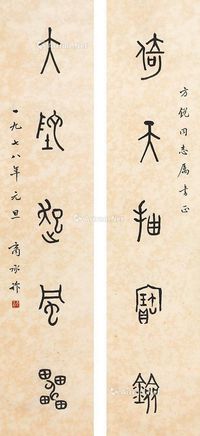 倚天抽寶劍
方銳同志屬書正
大地起風雷
一九七八年元旦 商承祚